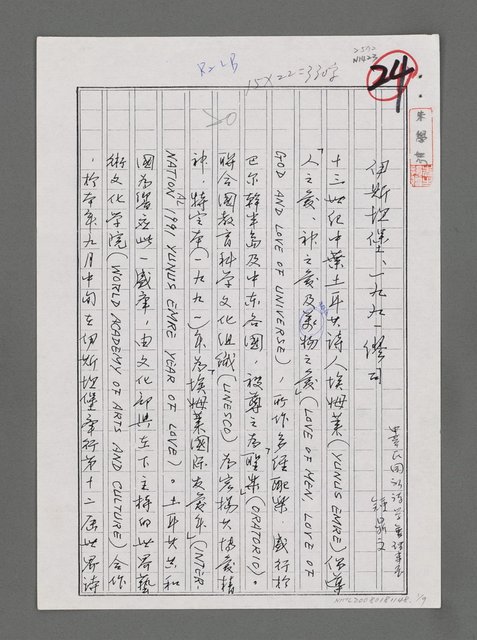 2572
N1423
24
R2LB
15X22=330字
伊斯坦堡、一九九一僧司
鍾鼎文
十三世紀中葉土耳其詩人埃姆萊(YUNUS EMRE)倡導
人之愛、神之愛及萬物之愛」(LOVE OF MEN, LOVE OF
GOD AND LOVE OF UNIVERSE),所作多經配樂,盛行於
巴尔幹半島及中東各國,被尊之為「聖樂(ORATORIO)。
聯合國教育科学文化組織(UNESCO)為宏揚其博愛精
神,特定本(一九九一)年為「埃姆萊國际友愛年」(INTER-
NATIONAL 1991 YUNUS EMRE YEAR OF LOVE)。土耳其共和
國為響应此一盛舉,由文化部與在下主持的世界藝
術文化学院(WORLD ACADEMY OF ARTS AND CULTURE)合作
,於本年九月中旬在伊斯坦堡舉行第十二屆世界詩
1/9